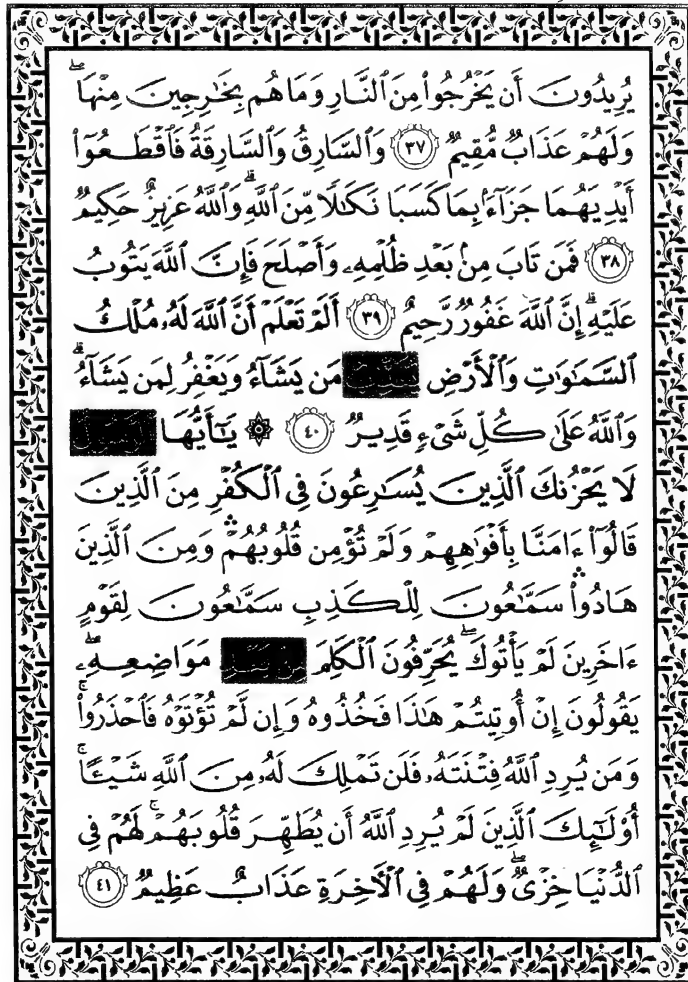 يُرِيدُونَ أَن يَخْرُجُوا۟ مِنَ ٱلنَّارِ وَمَا هُم بِخَٰرِجِينَ مِنْهَاۖ
وَلَهُمْ عَذَابٌ مُّقِيمٌ ٣٧ وَٱلسَّارِقُ وَٱلسَّارِقَةُ فَٱقْطَعُوٓا۟
أَيْدِيَهُمَا جَزَآءًۢ بِمَا كَسَبَا نَكَٰلًا مِّنَ ٱللَّهِۗ وَٱللَّهُ عَزِيزٌ حَكِيمٌ
٣٨ فَمَن تَابَ مِنۢ بَعْدِ ظُلْمِهِۦ وَأَصْلَحَ فَإِنَّ ٱللَّهَ يَتُوبُ
عَلَيْهِۗ إِنَّ ٱللَّهَ غَفُورٌ رَّحِيمٌ ٣٩ أَلَمْ تَعْلَمْ أَنَّ ٱللَّهَ لَهُۥ مُلْكُ
ٱلسَّمَٰوَٰتِ وَٱلْأَرْضِ مَن يَشَآءُ وَيَغْفِرُ لِمَن يَشَآءُۗ
وَٱللَّهُ عَلَىٰ كُلِّ شَىْءٍ قَدِيرٌ ٤٠ ۞ يَٰٓأَيُّهَا
لَا يَحْزُنكَ ٱلَّذِينَ يُسَٰرِعُونَ فِى ٱلْكُفْرِ مِنَ ٱلَّذِينَ
قَالُوٓا۟ ءَامَنَّا بِأَفْوَٰهِهِمْ وَلَمْ تُؤْمِن قُلُوبُهُمْۛ وَمِنَ ٱلَّذِينَ
هَادُوا۟ۛ سَمَّٰعُونَ لِلْكَذِبِ سَمَّٰعُونَ لِقَوْمٍ
ءَاخَرِينَ لَمْ يَأْتُوكَۖ يُحَرِّفُونَ ٱلْكَلِمَ مَوَاضِعِهِۦۖ
يَقُولُونَ إِنْ أُوتِيتُمْ هَٰذَا فَخُذُوهُ وَإِن لَّمْ تُؤْتَوْهُ فَٱحْذَرُوا۟ۚ
وَمَن يُرِدِ ٱللَّهُ فِتْنَتَهُۥ فَلَن تَمْلِكَ لَهُۥ مِنَ ٱللَّهِ شَيْـًٔاۚ
أُو۟لَٰٓئِكَ ٱلَّذِينَ لَمْ يُرِدِ ٱللَّهُ أَن يُطَهِّرَ قُلُوبَهُمْۚ لَهُمْ فِى
ٱلدُّنْيَا خِزْىٌۖ وَلَهُمْ فِى ٱلْءَاخِرَةِ عَذَابٌ عَظِيمٌ ٤١